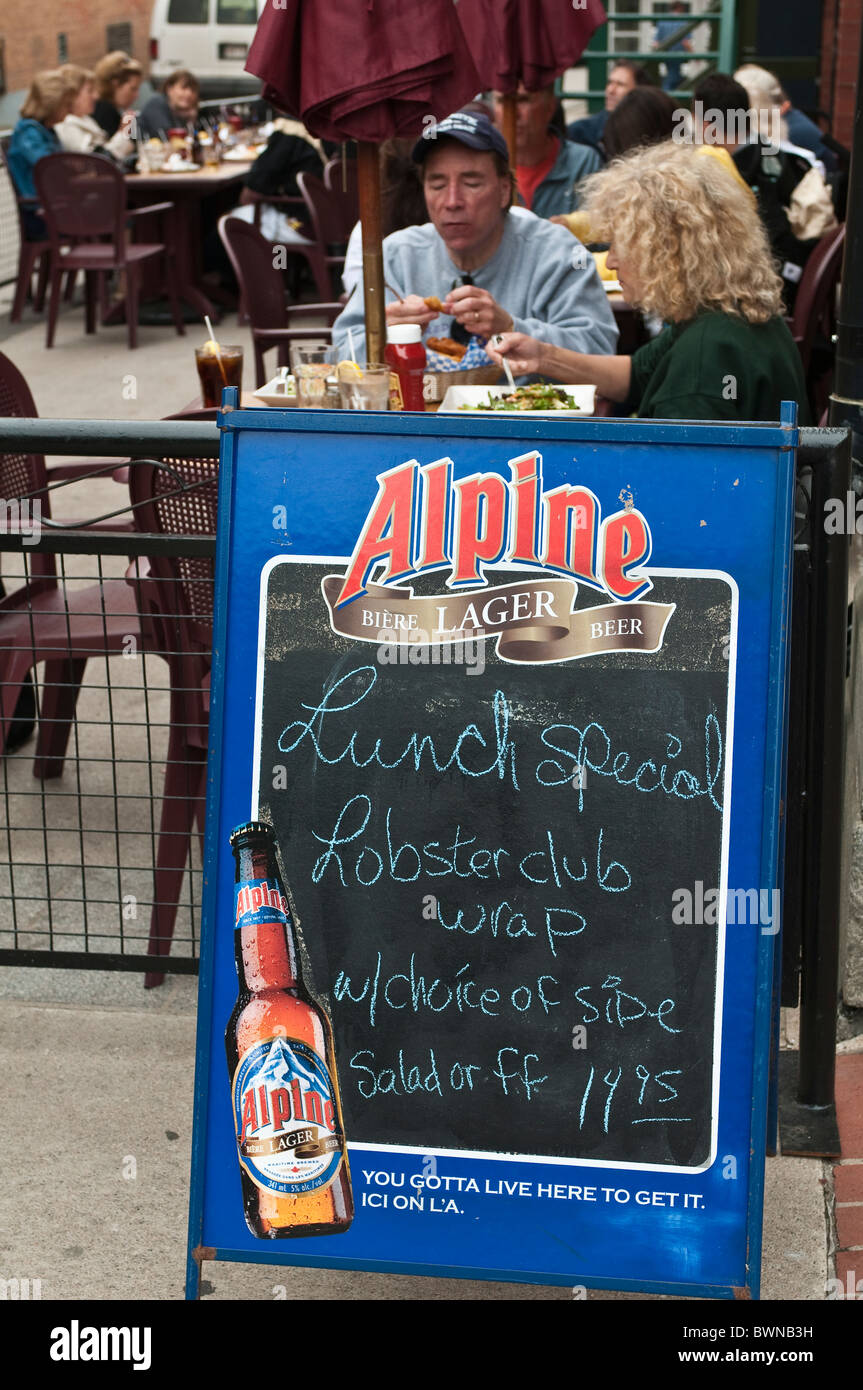 Alpine
BIÈRE LAGER BEER
Lunch Special
Lobster club
wrap
w/choice of side
Salad or ff 14.95
Alpine
Alpine
BIÈRE LAGER BEER
MARITIME BREWED
341 mL 5% alc./vol.
YOU GOTTA LIVE HERE TO GET IT.
ICI ON L'A.
alamy
Image ID: BWNB3H
www.alamy.com